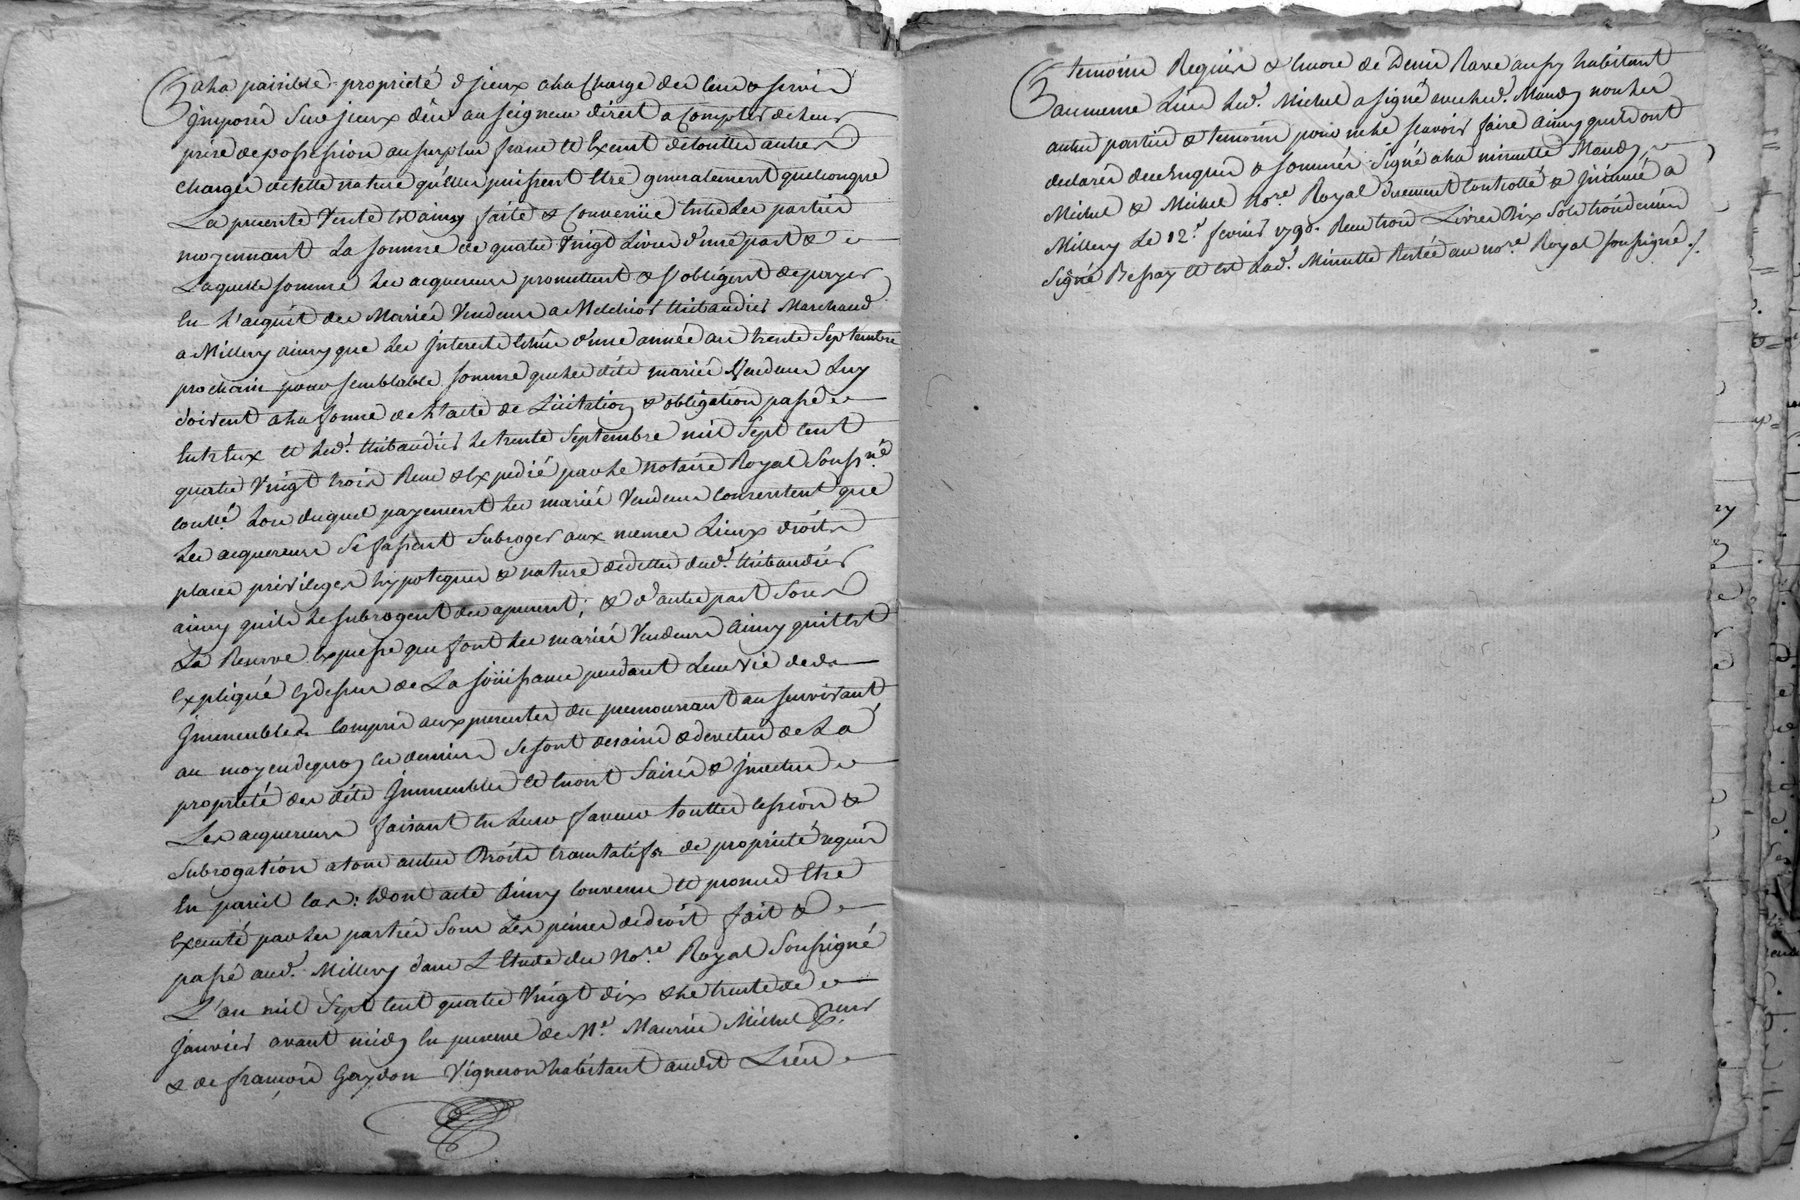 a la paisible propriété d'jceux a la Charge des Cens & servis
jmposés sur jceux dûs au seigneur direct a Compter de leur
prise de possession au surplus franc et Exempt de touttes autres
charges de telle nature qu'elles puissent Etre generalement quelconque
La presente Vente Est ainsy faite & Convenüe Entre Les parties
moyennant La somme de quatre Vingt Livres d'une part &
Laquelle somme Les acquereurs promettent & s'obligent de payer
En L'acquit des Mariés Vendeurs a Melchior thibaudier Marchand
a Millery ainsy que Les jnterests Echûs d'une année au trente Septembre
prochain pour semblable somme que les dits mariés Vendeurs Luy
doivent a la forme de L'acte de Licitation & obligation passé
Entr'Eux et Led.t thibaudier Le trente Septembre mil Sept Cent
quatre Vingt trois Reçu & Expedié par Le Notaire Royal Souss.né
Contllé. Lors duquel payement Les mariés Vendeurs Consentent que
Les acquereurs Se fassent Subroger aux memes Lieux droits
places privileges hypoteques & nature de dettes dud.t thibaudier
ainsy quils Le subrogent des apresent; & d'autre part Sous
La Reserve Expresse que font Les mariés Vendeurs Ainsy quil Est
Expliqué Cy dessus de La joüissance pendant Leur Vie desds
jmmeubles Compris aux presentes du premourant au survivant
au moyen de quoy Ces derniers Se sont desaisis & devetus de La
proprieté des dits jmmeubles et En ont Saisis & jnvestus
Les acquereurs faisant En Leur faveur touttes Cession &
Subrogation a tous autres Droits translatifs de proprieté requis
En pareil Cas: Dont acte Ainsy Convenu et promis Etre
Executé par Les parties Sous Les peines de droit fait &
passé aud.t Millery dans L'Etude du No.re Royal Soussigné
L'an mil Sept Cent quatre Vingt dix & Le trente de
janvier avant midy En presence de M.e Maurice Michel
& de françois Gaydon Vigneron habitant audit Lieu
temoins Requis & Encore de Denis Rave aussy habitant
au meme Lieu Led.t Michel a signé avec led.t Maudy non les
autres parties & temoins pour ne le sçavoir faire ainsy quils ont
declarés de ce Enquis & sommés. Signé a la minutte Maudy
Michel & Michel No.re Royal duement Controllé & jnsinué a
Millery Le 12.e fevrier 1790. Reçu trois Livres Dix Sols trois deniers
Signé Bessay et Est Lad.t Minutte Restée au no.re Royal soussigné./.